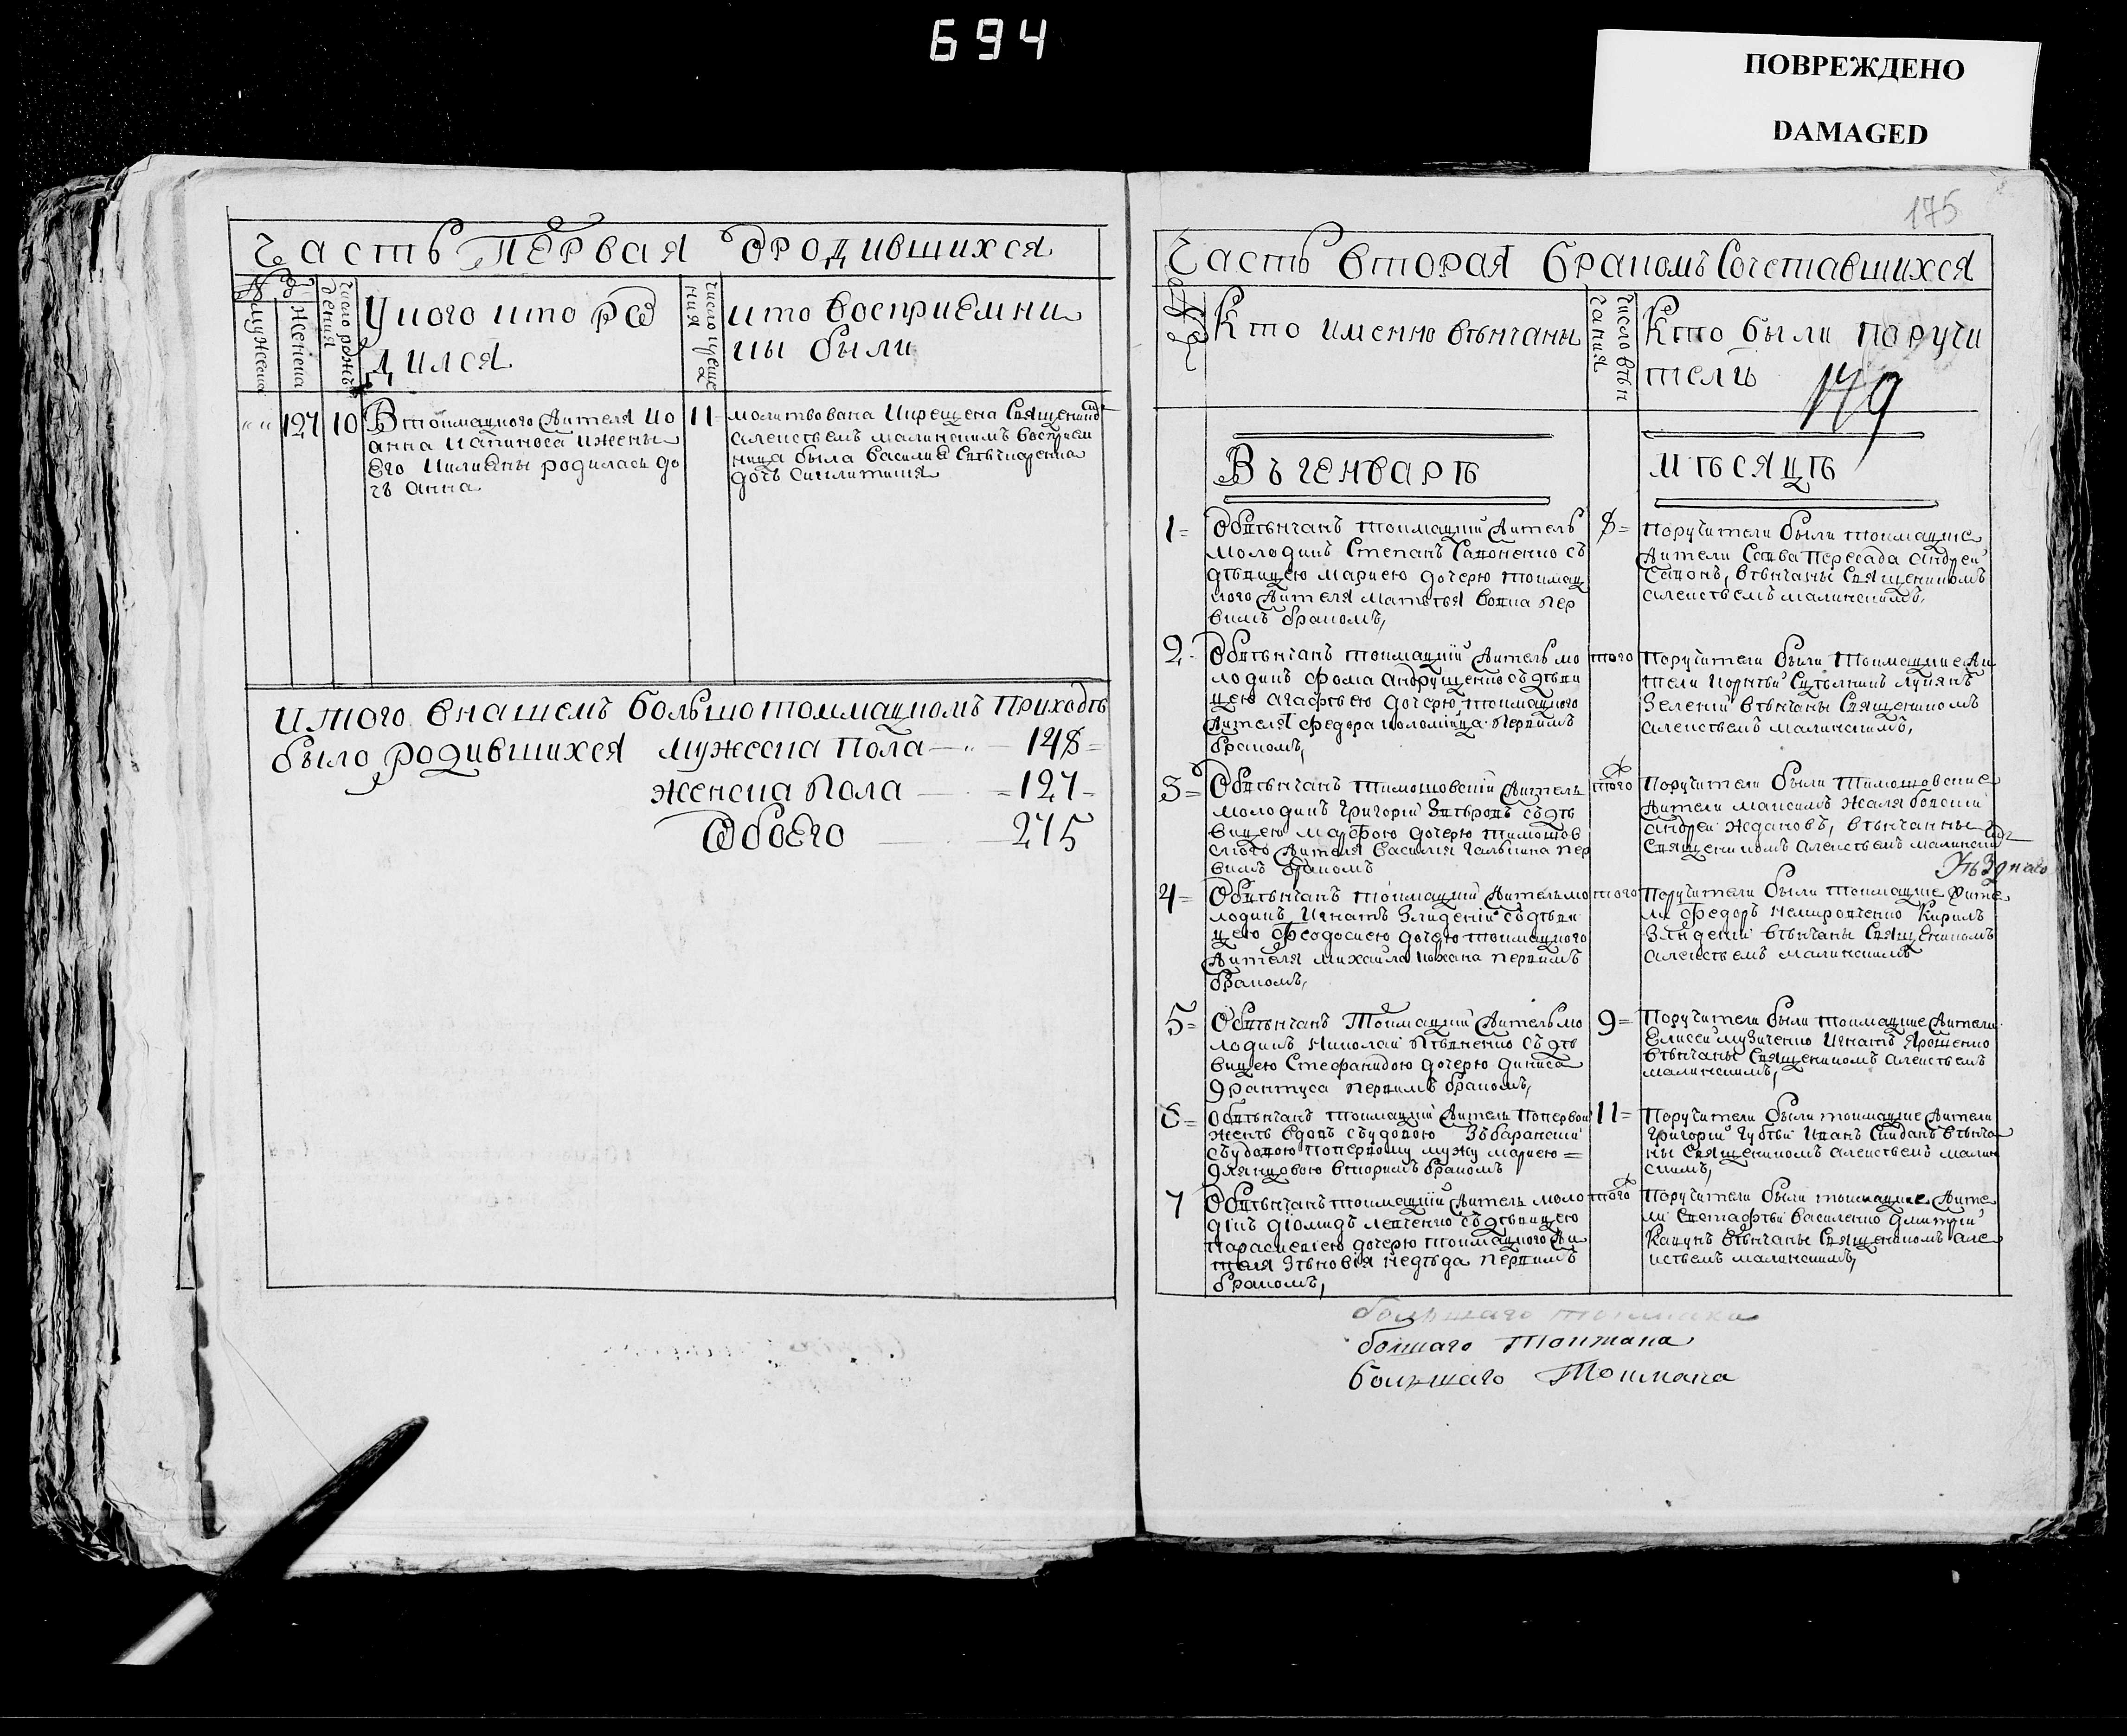 694
ПОВРЕЖДЕНО
DAMAGED
Часть Первая Ѡродившихся
№
мужеска
женска
число рождения
У кого кто рѡ
дился
число крещения
кто восприемни
ки были
127
10
В токмацкого жителя Ио
анна Капиноса и жены
Его Иулиѧны родилась до
чъ Анна
11
молитвована и крещена Священником
алексѣемъ малинскимъ восприем
ница была Василия
дочъ
Итого внашемъ Большотокмацкомъ Приходѣ
было родившихся мужеска Пола 148
женска Пола 127
Ѡбоего 275
175
Часть вторая бракомъ Сочетавшихся
Кто именно вѣнчаны
число вѣнчания
Кто были поручи
тели
179
Въ генварѣ
мѣсяцѣ
1
Обвѣнчанъ токмацкій житель
молодикъ Степанъ Сапоненко съ
дѣвицею мариею дочерю токмац
кого жителя Матвѣя Вовка пер
вимъ бракомъ,
8
Поручители были токмацкие
жители Савва Пересада андрей
Сапонъ, вѣнчаны Священикомъ
алексѣемъ малинскимъ,
2
Обвѣнчанъ токмацкій житель мо
лодикъ Фома андрущенко съ дѣви
цею агафѣею дочерю токмацкого
жителя федора коломійца первимъ
бракомъ,
того
Поручители были Токмацкие жи
тели Лукянъ
Зеленій вѣнчаны Священикомъ
алексѣемъ малинскимъ,
3
Обвѣнчанъ тимошовскій житель
молодикъ григорій съ дѣ
вицею марфою дочерю тимошов
ского жителя василия галькина пер
вимъ бракомъ
того
Поручители были Тимошовские
жители максимъ
андрей ждановъ, вѣнчанны
Священикомъ алексѣемъ малинским
4
Обвѣнчанъ токмацкій житель мо
лодикъ Игнатъ Злиденій съ дѣви
цею феодосиею дочерю токмацкого
жителя михайла кохана первимъ
бракомъ,
того
Поручители были токмацкие жите
ли федоръ немировченко Кирилъ
Злиденій вѣнчаны Священикомъ
алексѣемъ малинскимъ
5
Обвѣнчанъ Токмацкій житель мо
лодикъ Николай Пѣвненко съ дѣ
вицею Стефанидою дочерю дениса
драктуса первимъ бракомъ,
9
Поручители были токмацкие жители
Елисей музиченко Игнатъ Ярошенко
вѣнчаны Священикомъ алексѣемъ
малинскимъ,
6
Обвѣнчанъ токмацкій житель по первой
женѣ вдовъ съ удовою Збаранскій
съ удовою по первому мужу мариею
вторимъ бракомъ
11
Поручители были токмацкие жители
григорій губѣй Иванъ вѣнча
ны Священикомъ алексѣемъ малин
скимъ,
7
Обвѣнчанъ токмацкій житель моло
дікъ діомидъ левченко съ дѣвицею
Параскевіею дочерю токмацкого жи
теля Зѣновія недѣда первимъ
бракомъ,
того
Поручители были токмацкие жите
ли Евстафѣй Василенко дмитрій
Кацунъ вѣнчаны Священикомъ але
ксѣемъ малинскимъ,
большаго токмака
болшаго Токмака
большаго Токмака